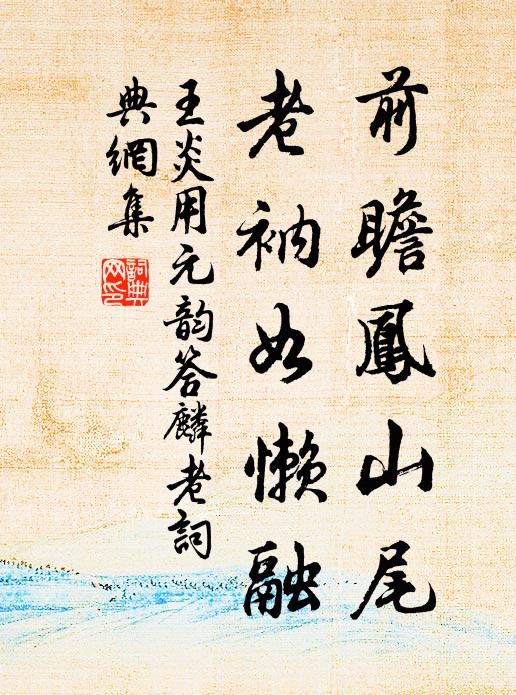 前瞻鳳山尾
老衲如懶融
王炎用元韵答麟老詞
典網集
詞典网印